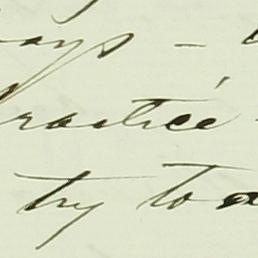 ays –
Practice
try to a